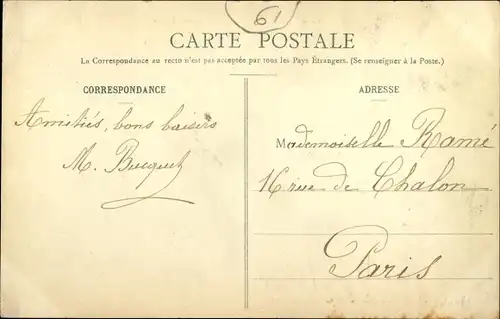 61
CARTE POSTALE
La Correspondance au recto n'est pas acceptée par tous les Pays Étrangers. (Se renseigner à la Poste.)
CORRESPONDANCE
Amitiés, bons baisers
M. Bucquet
ADRESSE
Mademoiselle Ramé
16 rue de Chalon
Paris